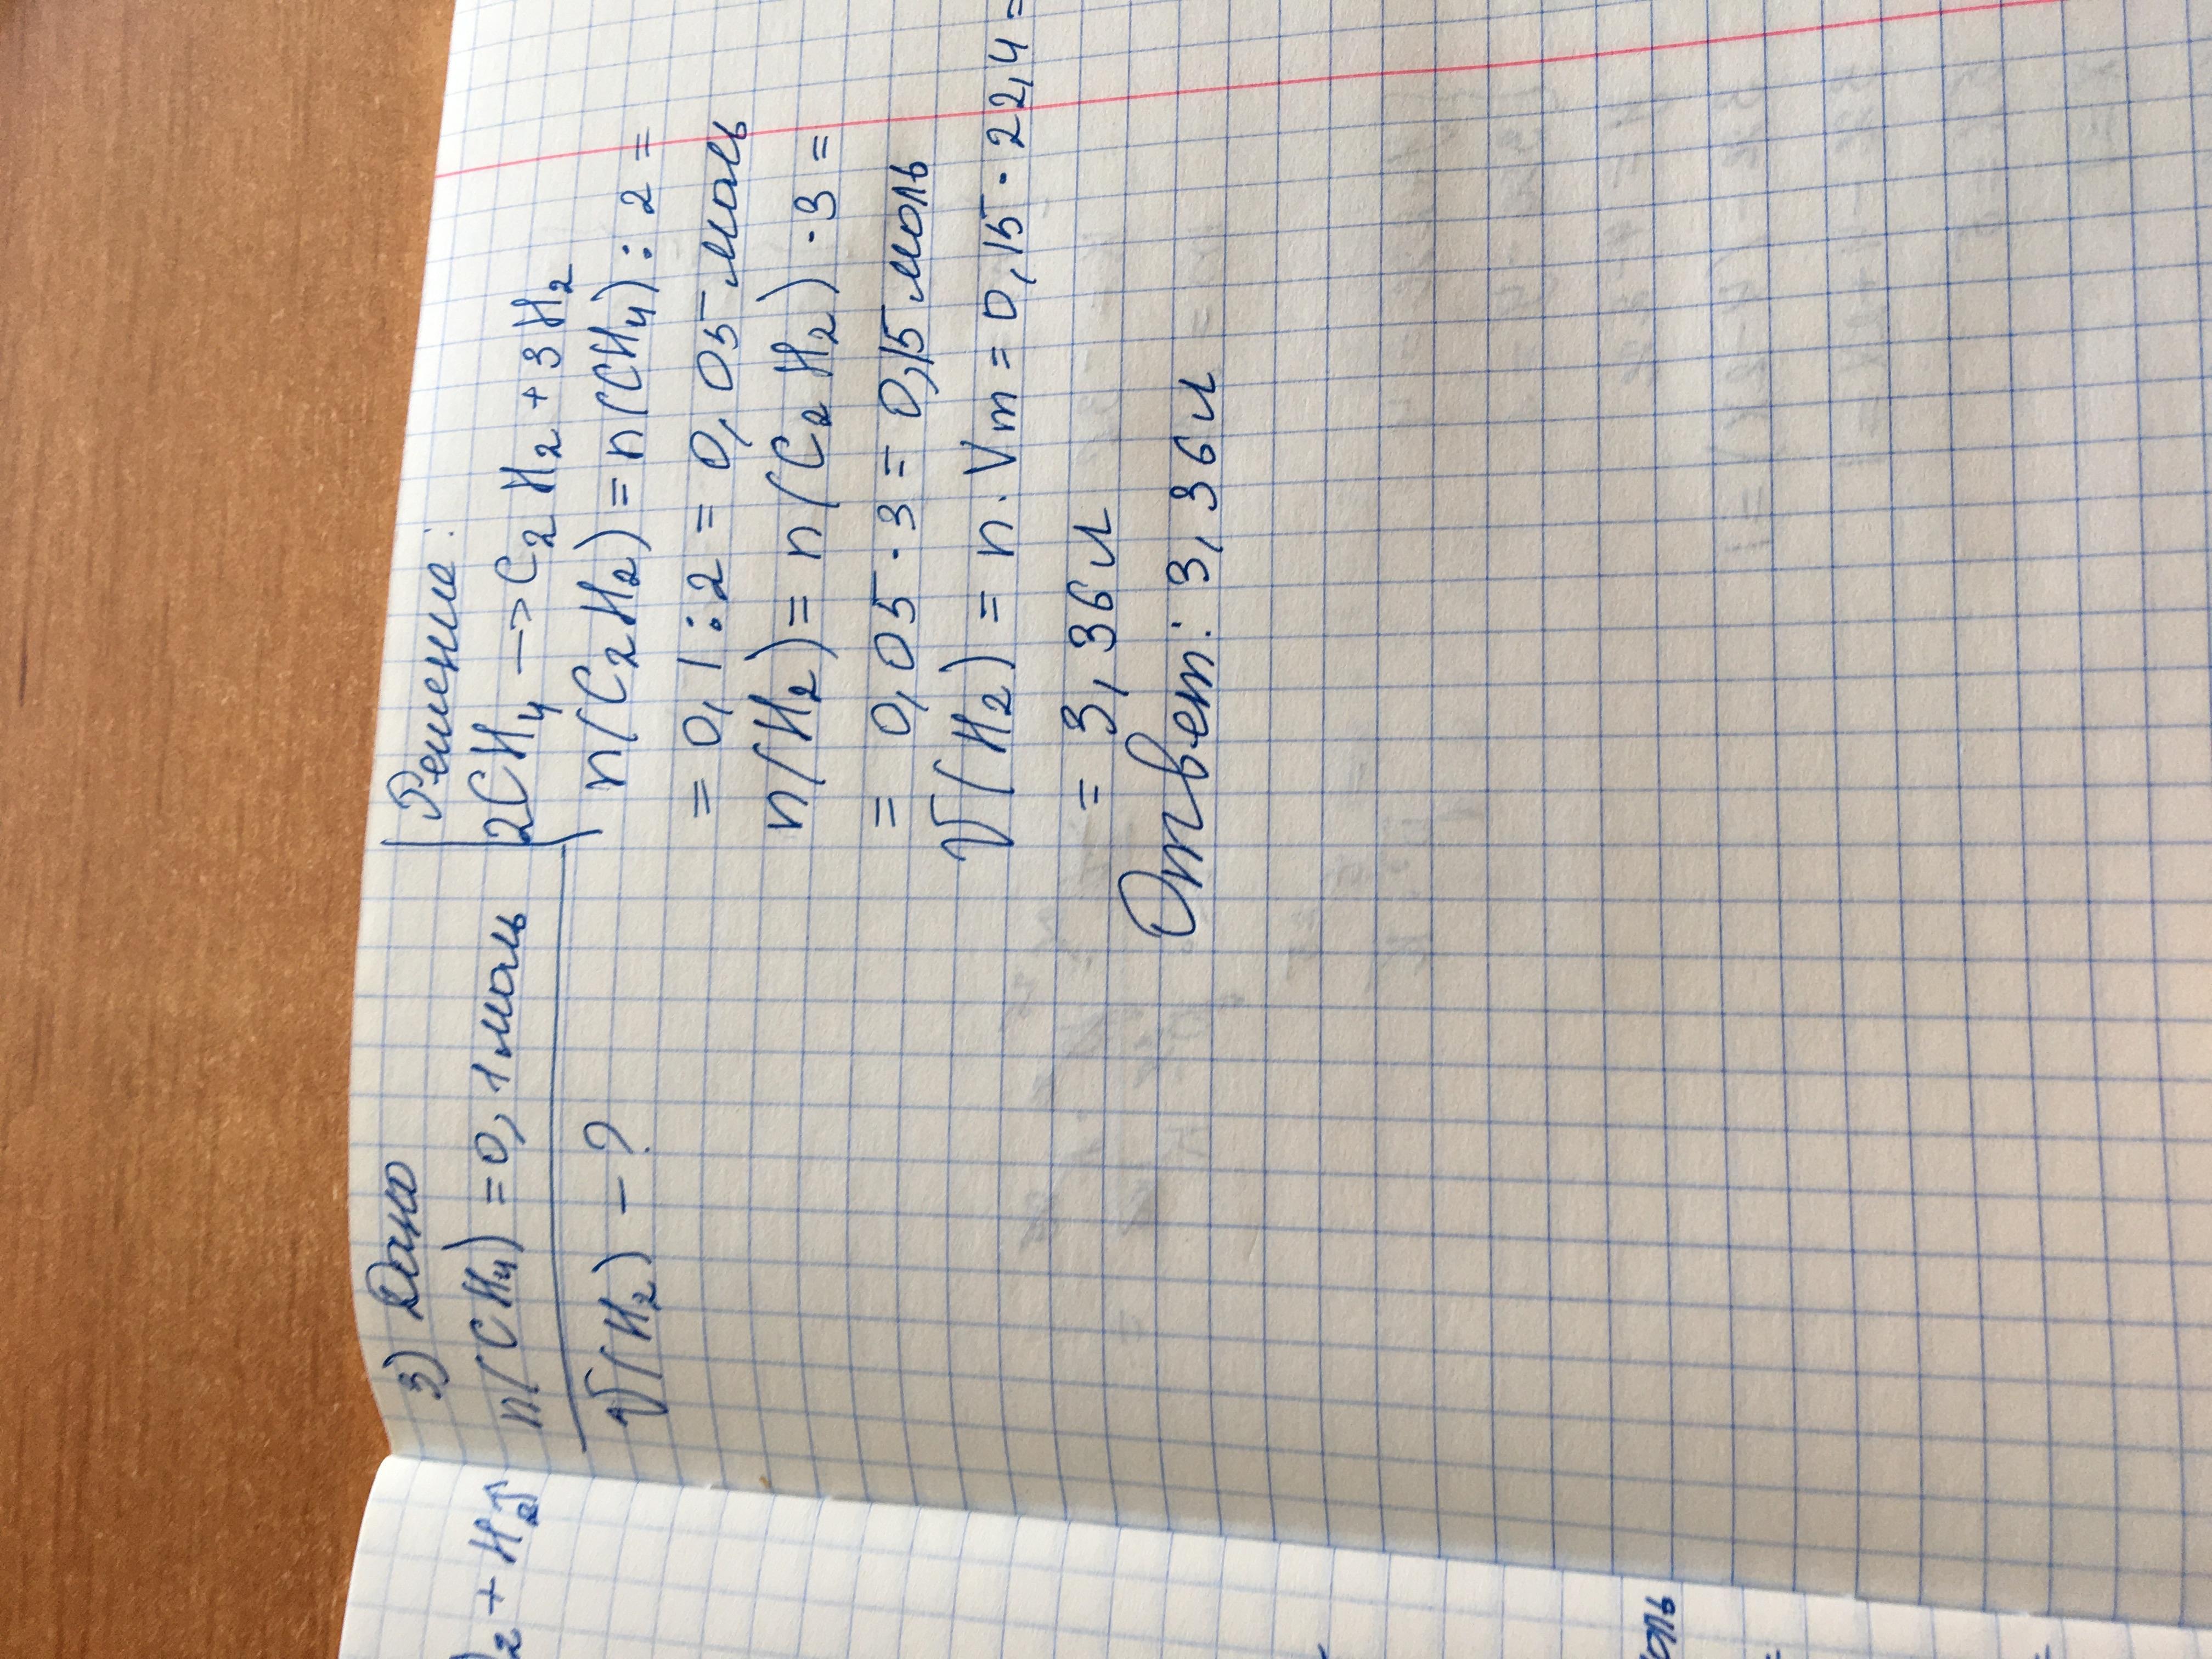 3) Дано
n(CH₄) = 0,1 моль
V(H₂) - ?
Решение:
2CH₄ -> C₂H₂ + 3H₂
n(C₂H₂) = n(CH₄) : 2 =
= 0,1 : 2 = 0,05 моль
n(H₂) = n(C₂H₂) · 3 =
= 0,05 · 3 = 0,15 моль
V(H₂) = n · Vm = 0,15 · 22,4 =
= 3,36 л
Ответ: 3,36 л
₂ + H₂↑
оль
=
=